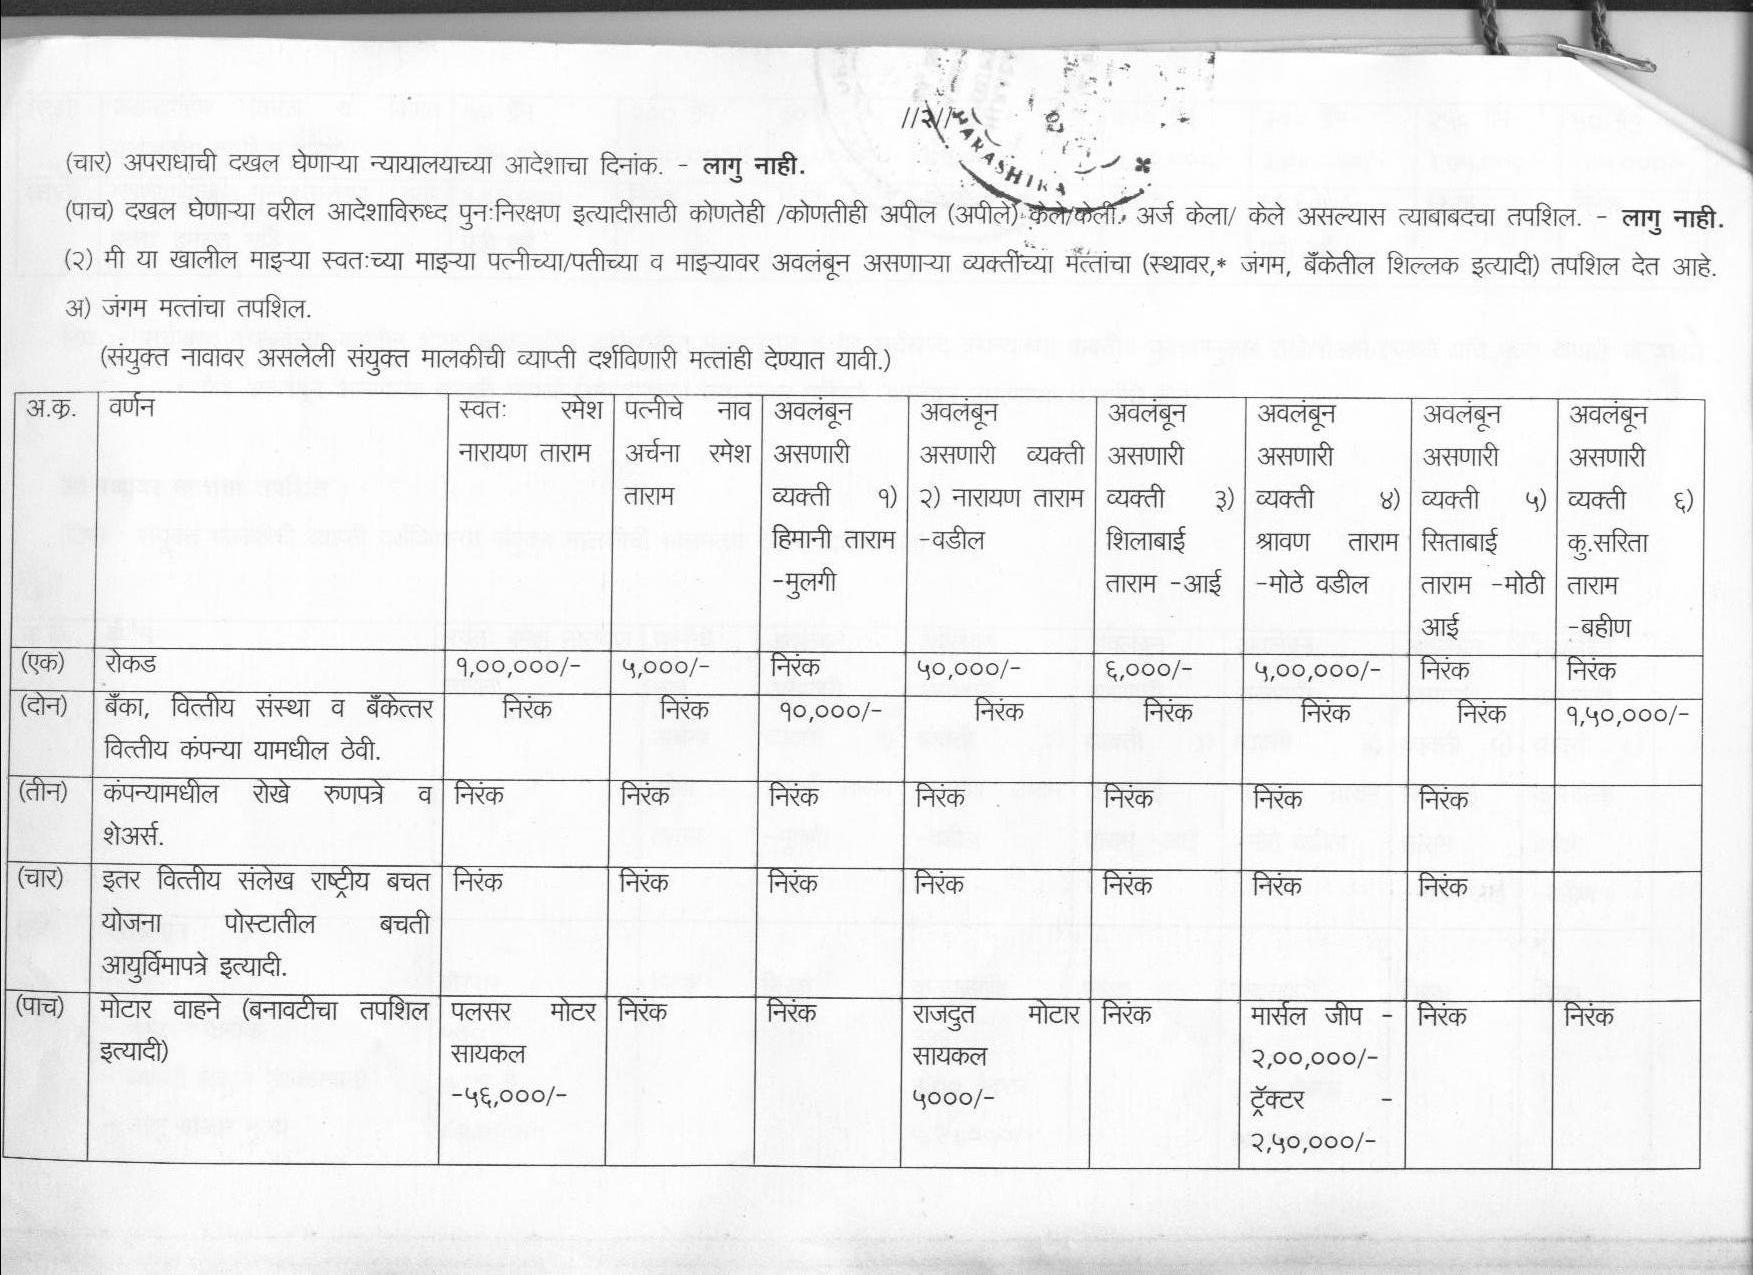 //२//
MAHARASHTRA
(चार) अपराधाची दखल घेणाऱ्या न्यायालयाच्या आदेशाचा दिनांक. - लागु नाही.
(पाच) दखल घेणाऱ्या वरील आदेशाविरुध्द पुनःनिरक्षण इत्यादीसाठी कोणतेही /कोणतीही अपील (अपीले) केले/केली, अर्ज केला/ केले असल्यास त्याबाबदचा तपशिल. - लागु नाही.
(२) मी या खालील माझ्या स्वतःच्या माझ्या पत्नीच्या/पतीच्या व माझ्यावर अवलंबून असणाऱ्या व्यक्तींच्या मत्तांचा (स्थावर,* जंगम, बँकेतील शिल्लक इत्यादी) तपशिल देत आहे.
अ) जंगम मत्तांचा तपशिल.
(संयुक्त नावावर असलेली संयुक्त मालकीची व्याप्ती दर्शविणारी मत्तांही देण्यात यावी.)
अ.क्र. वर्णन स्वतः रमेश पत्नीचे नाव अवलंबून अवलंबून अवलंबून अवलंबून अवलंबून अवलंबून
नारायण ताराम अर्चना रमेश असणारी असणारी व्यक्ती असणारी असणारी असणारी असणारी
ताराम व्यक्ती १) २) नारायण ताराम व्यक्ती ३) व्यक्ती ४) व्यक्ती ५) व्यक्ती ६)
हिमानी ताराम -वडील शिलाबाई श्रावण ताराम सिताबाई कु.सरिता
-मुलगी ताराम -आई -मोठे वडील ताराम -मोठी ताराम
आई -बहीण
(एक) रोकड १,००,०००/- ५,०००/- निरंक ५०,०००/- ६,०००/- ५,००,०००/- निरंक निरंक
(दोन) बँका, वित्तीय संस्था व बँकेत्तर निरंक निरंक १०,०००/- निरंक निरंक निरंक निरंक १,५०,०००/-
वित्तीय कंपन्या यामधील ठेवी.
(तीन) कंपन्यामधील रोखे रुणपत्रे व निरंक निरंक निरंक निरंक निरंक निरंक निरंक
शेअर्स.
(चार) इतर वित्तीय संलेख राष्ट्रीय बचत निरंक निरंक निरंक निरंक निरंक निरंक निरंक
योजना पोस्टातील बचती
आयुर्विमापत्रे इत्यादी.
(पाच) मोटार वाहने (बनावटीचा तपशिल पलसर मोटर निरंक निरंक राजदुत मोटार निरंक मार्सल जीप - निरंक निरंक
इत्यादी) सायकल सायकल २,००,०००/-
-५६,०००/- ५०००/- ट्रॅक्टर -
२,५०,०००/-